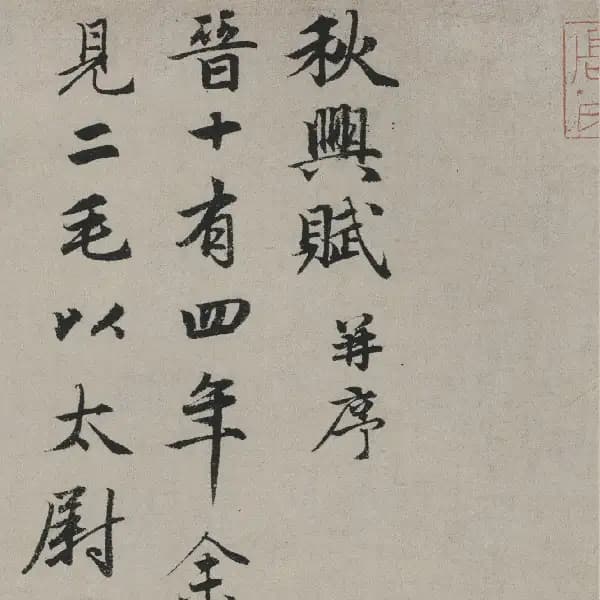 秋興賦并序
晉十有四年余
見二毛以太尉